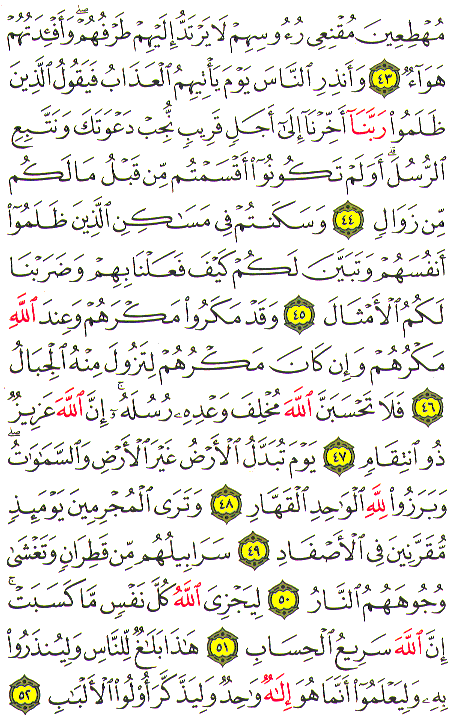 مُهۡطِعِينَ مُقۡنِعِي رُءُوسِهِمۡ لَا يَرۡتَدُّ إِلَيۡهِمۡ طَرۡفُهُمۡۖ وَأَفۡـِٔدَتُهُمۡ
هَوَآءٞ ٤٣ وَأَنذِرِ ٱلنَّاسَ يَوۡمَ يَأۡتِيهِمُ ٱلۡعَذَابُ فَيَقُولُ ٱلَّذِينَ
ظَلَمُواْ رَبَّنَآ أَخِّرۡنَآ إِلَىٰٓ أَجَلٖ قَرِيبٖ نُّجِبۡ دَعۡوَتَكَ وَنَتَّبِعِ
ٱلرُّسُلَۗ أَوَلَمۡ تَكُونُوٓاْ أَقۡسَمۡتُم مِّن قَبۡلُ مَا لَكُم
مِّن زَوَالٖ ٤٤ وَسَكَنتُمۡ فِي مَسَٰكِنِ ٱلَّذِينَ ظَلَمُوٓاْ
أَنفُسَهُمۡ وَتَبَيَّنَ لَكُمۡ كَيۡفَ فَعَلۡنَا بِهِمۡ وَضَرَبۡنَا
لَكُمُ ٱلۡأَمۡثَالَ ٤٥ وَقَدۡ مَكَرُواْ مَكۡرَهُمۡ وَعِندَ ٱللَّهِ
مَكۡرُهُمۡ وَإِن كَانَ مَكۡرُهُمۡ لِتَزُولَ مِنۡهُ ٱلۡجِبَالُ
٤٦ فَلَا تَحۡسَبَنَّ ٱللَّهَ مُخۡلِفَ وَعۡدِهِۦ رُسُلَهُۥٓۚ إِنَّ ٱللَّهَ عَزِيزٞ
ذُو ٱنتِقَامٖ ٤٧ يَوۡمَ تُبَدَّلُ ٱلۡأَرۡضُ غَيۡرَ ٱلۡأَرۡضِ وَٱلسَّمَٰوَٰتُۖ
وَبَرَزُواْ لِلَّهِ ٱلۡوَٰحِدِ ٱلۡقَهَّارِ ٤٨ وَتَرَى ٱلۡمُجۡرِمِينَ يَوۡمَئِذٖ
مُّقَرَّنِينَ فِي ٱلۡأَصۡفَادِ ٤٩ سَرَابِيلُهُم مِّن قَطِرَانٖ وَتَغۡشَىٰ
وُجُوهَهُمُ ٱلنَّارُ ٥٠ لِيَجۡزِيَ ٱللَّهُ كُلَّ نَفۡسٖ مَّا كَسَبَتۡۚ
إِنَّ ٱللَّهَ سَرِيعُ ٱلۡحِسَابِ ٥١ هَٰذَا بَلَٰغٞ لِّلنَّاسِ وَلِيُنذَرُواْ
بِهِۦ وَلِيَعۡلَمُوٓاْ أَنَّمَا هُوَ إِلَٰهٞ وَٰحِدٞ وَلِيَذَّكَّرَ أُوْلُواْ ٱلۡأَلۡبَٰبِ ٥٢